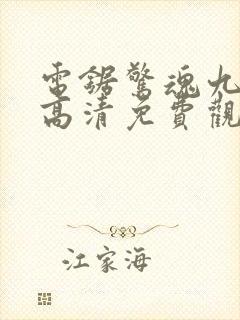 電鋸驚魂九
高清免費觀
江家海